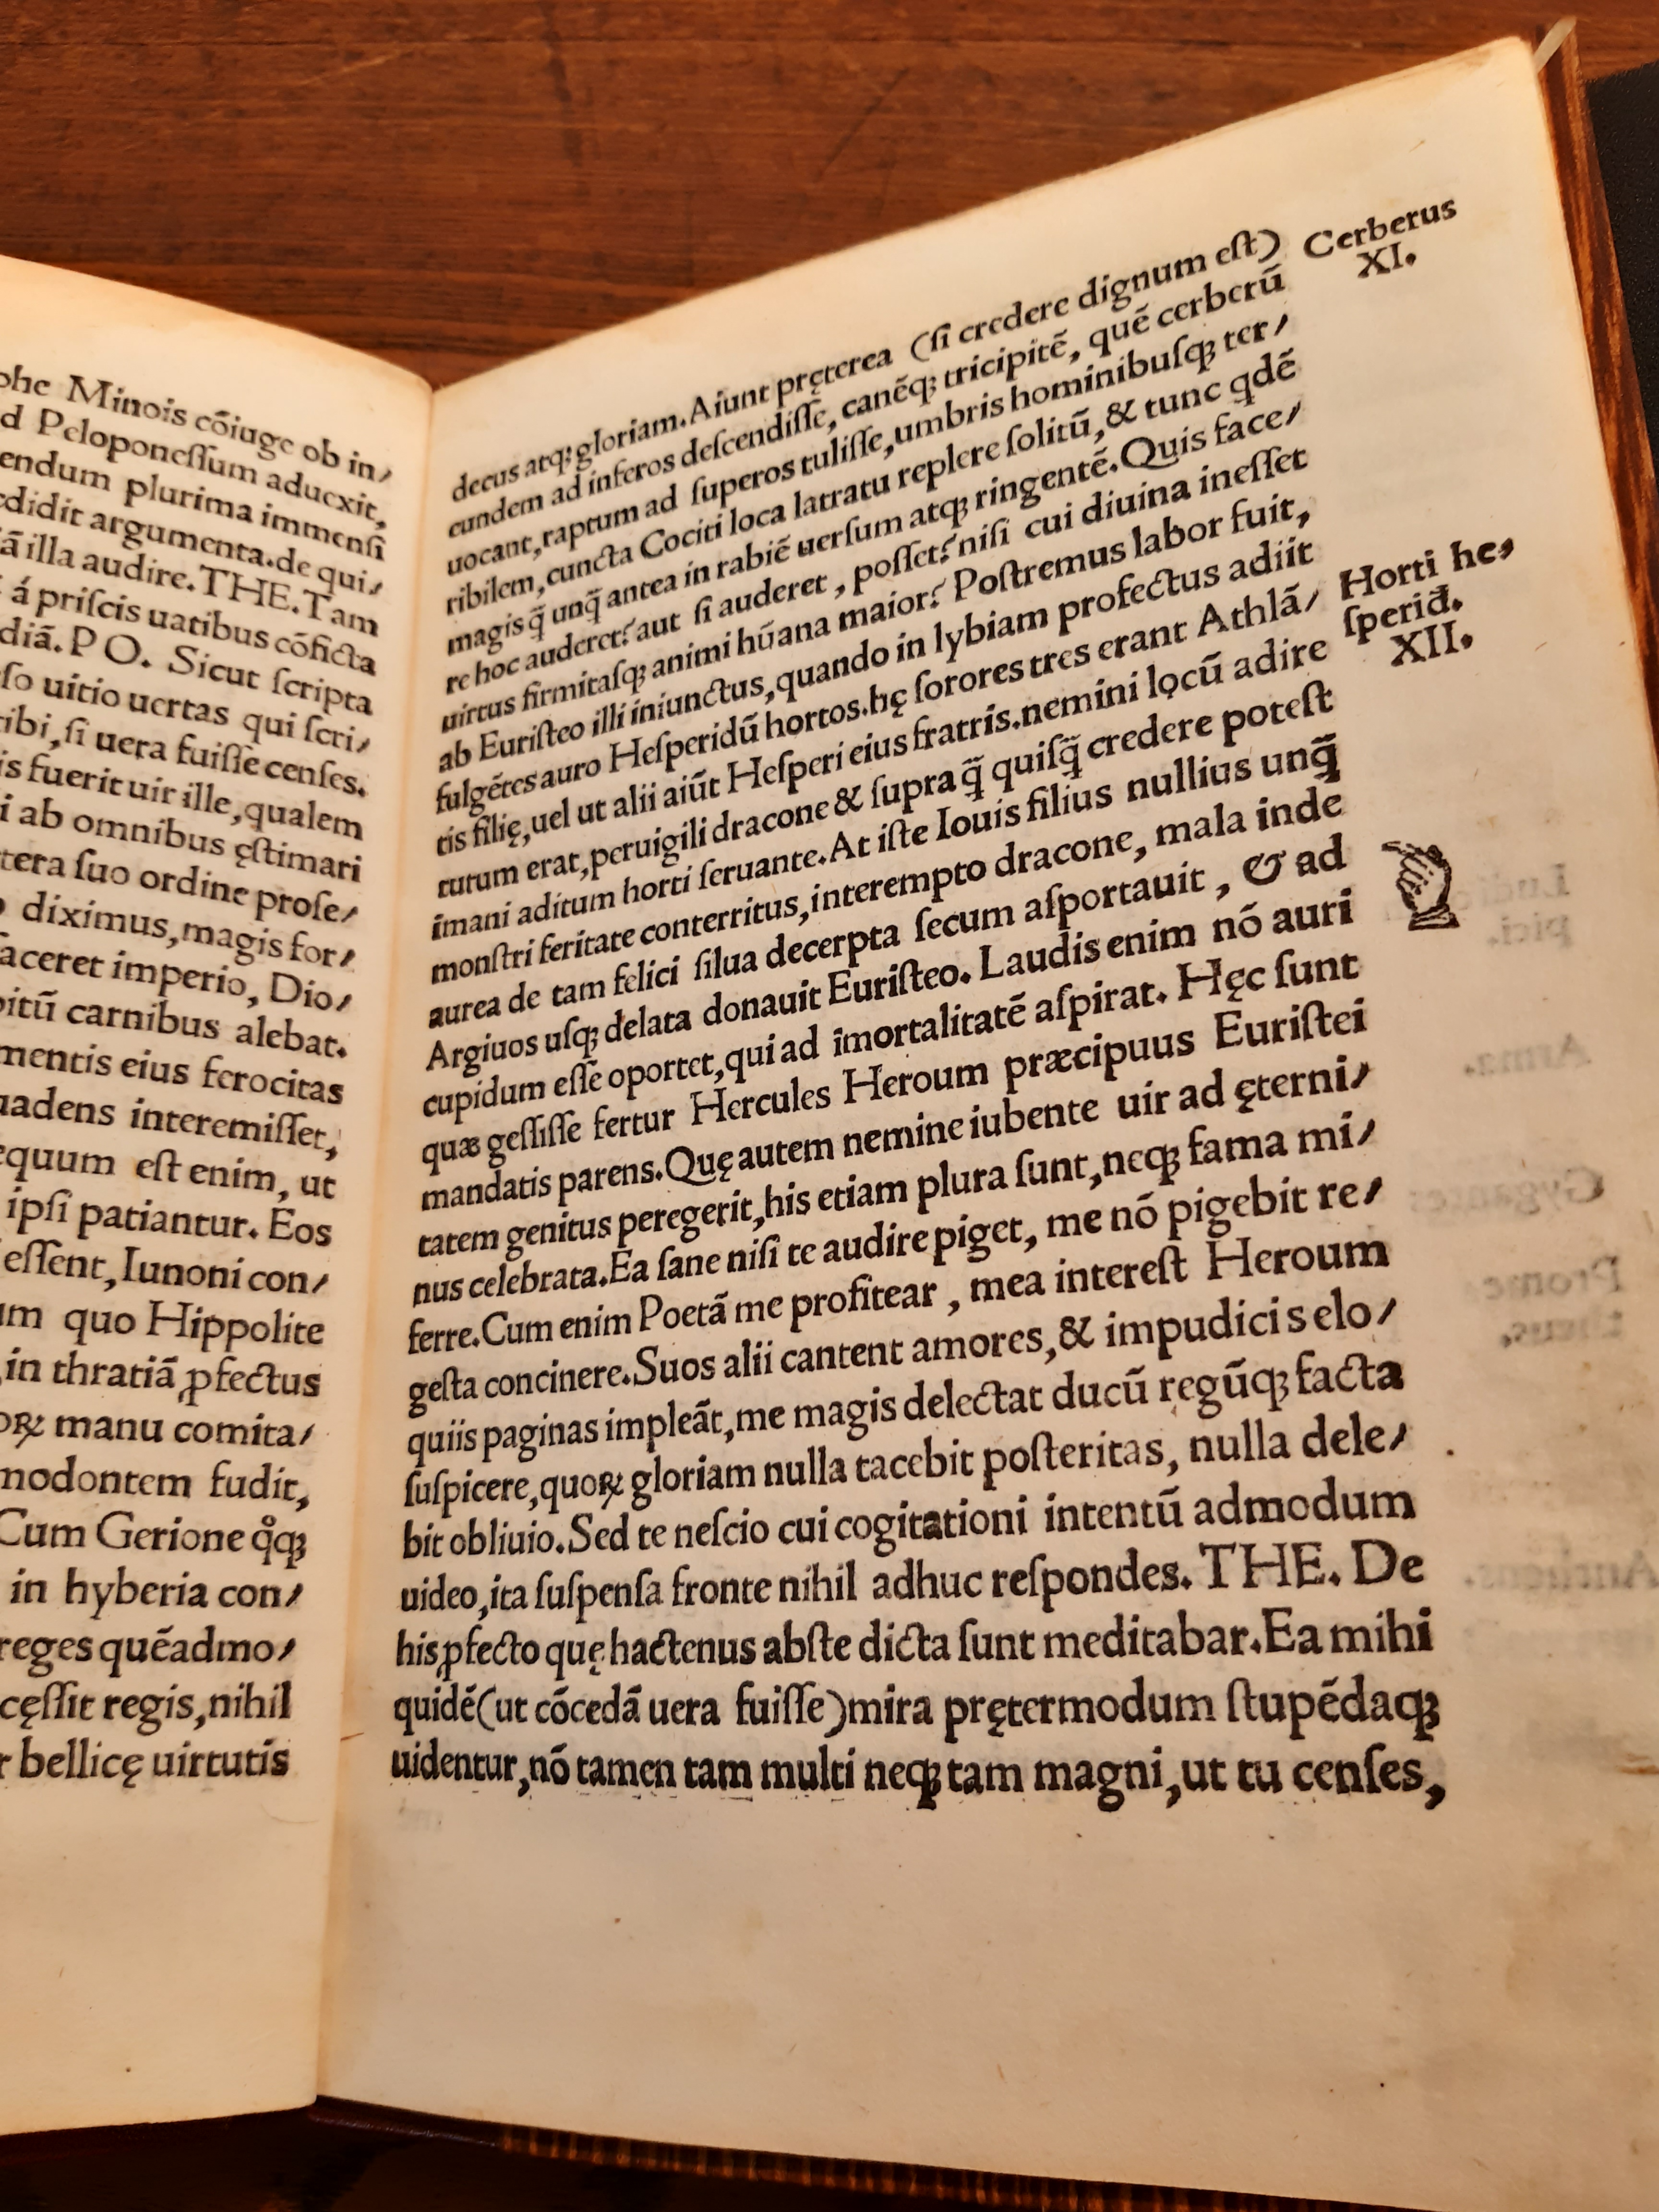 phe Minois cõiuge ob in/
d Peloponeſſum aduexit,
endum plurima immenſi
didit argumenta.de qui/
ã illa audire.THE.Tam
á priſcis uatibus cõficta
diã.PO. Sicut ſcripta
ſo uitio uertas qui ſcri/
ibi,ſi uera fuiſſe cenſes.
is fuerit uir ille,qualem
i ab omnibus ęſtimari
tera ſuo ordine proſe/
diximus,magis for/
faceret imperio, Dio/
bitũ carnibus alebat.
mentis eius ferocitas
uadens interemiſſet,
equum eſt enim, ut
ipſi patiantur. Eos
eſſent,Iunoni con/
um quo Hippolite
,in thratiã ꝓfectus
oꝝ manu comita/
modontem fudit,
Cum Gerione qͦqꝫ
in hyberia con/
reges quẽadmo/
ceſſit regis,nihil
r bellicę uirtutis
decus atqꝫ gloriam.Aiunt pręterea (ſi credere dignum eſt)
eundem ad inferos deſcendiſſe, canẽqꝫ tricipitẽ, quẽ cerberũ
uocant,raptum ad ſuperos tuliſſe,umbris hominibuſqꝫ ter/
ribilem,cuncta Cociti loca latratu replere ſolitũ,& tunc qdẽ
magis q̃ unq̃ antea in rabiẽ uerſum atqꝫ ringentẽ.Quis face/
re hoc auderet?aut ſi auderet , poſſet?niſi cui diuina ineſſet
uirtus firmitaſqꝫ animi hũana maior? Poſtremus labor fuit,
ab Euriſteo illi iniunctus,quando in lybiam profectus adiit
fulgẽtes auro Heſperidũ hortos.hę ſorores tres erant Athlã/
tis filię,uel ut alii aiũt Heſperi eius fratris.nemini locũ adire
tutum erat,peruigili dracone & ſupra q̃ quiſq̃ credere poteſt
ĩmani aditum horti ſeruante.At iſte Iouis filius nullius unq̃
monſtri feritate conterritus,interempto dracone, mala inde
aurea de tam felici ſilua decerpta ſecum aſportauit , & ad
Argiuos uſqꝫ delata donauit Euriſteo. Laudis enim nõ auri
cupidum eſſe oportet,qui ad ĩmortalitatẽ aſpirat. Hęc ſunt
quæ geſſiſſe fertur Hercules Heroum præcipuus Euriſtei
mandatis parens.Quę autem nemine iubente uir ad ęterni/
tatem genitus peregerit,his etiam plura ſunt,neqꝫ fama mi/
nus celebrata.Ea ſane niſi te audire piget, me nõ pigebit re/
ferre.Cum enim Poetã me profitear , mea intereſt Heroum
geſta concinere.Suos alii cantent amores,& impudicis elo/
quiis paginas impleãt,me magis delectat ducũ regũqꝫ facta
ſuſpicere,quoꝝ gloriam nulla tacebit poſteritas, nulla dele/
bit obliuio.Sed te neſcio cui cogitationi intentũ admodum
uideo,ita ſuſpenſa fronte nihil adhuc reſpondes. THE. De
his ꝓfecto quę hactenus abſte dicta ſunt meditabar.Ea mihi
quidẽ(ut cõcedã uera fuiſſe)mira pręter modum ſtupẽdaqꝫ
uidentur,nõ tamen tam multi neqꝫ tam magni,ut tu cenſes,
Cerberus
XI.
Horti he,
ſperid̃.
XII.